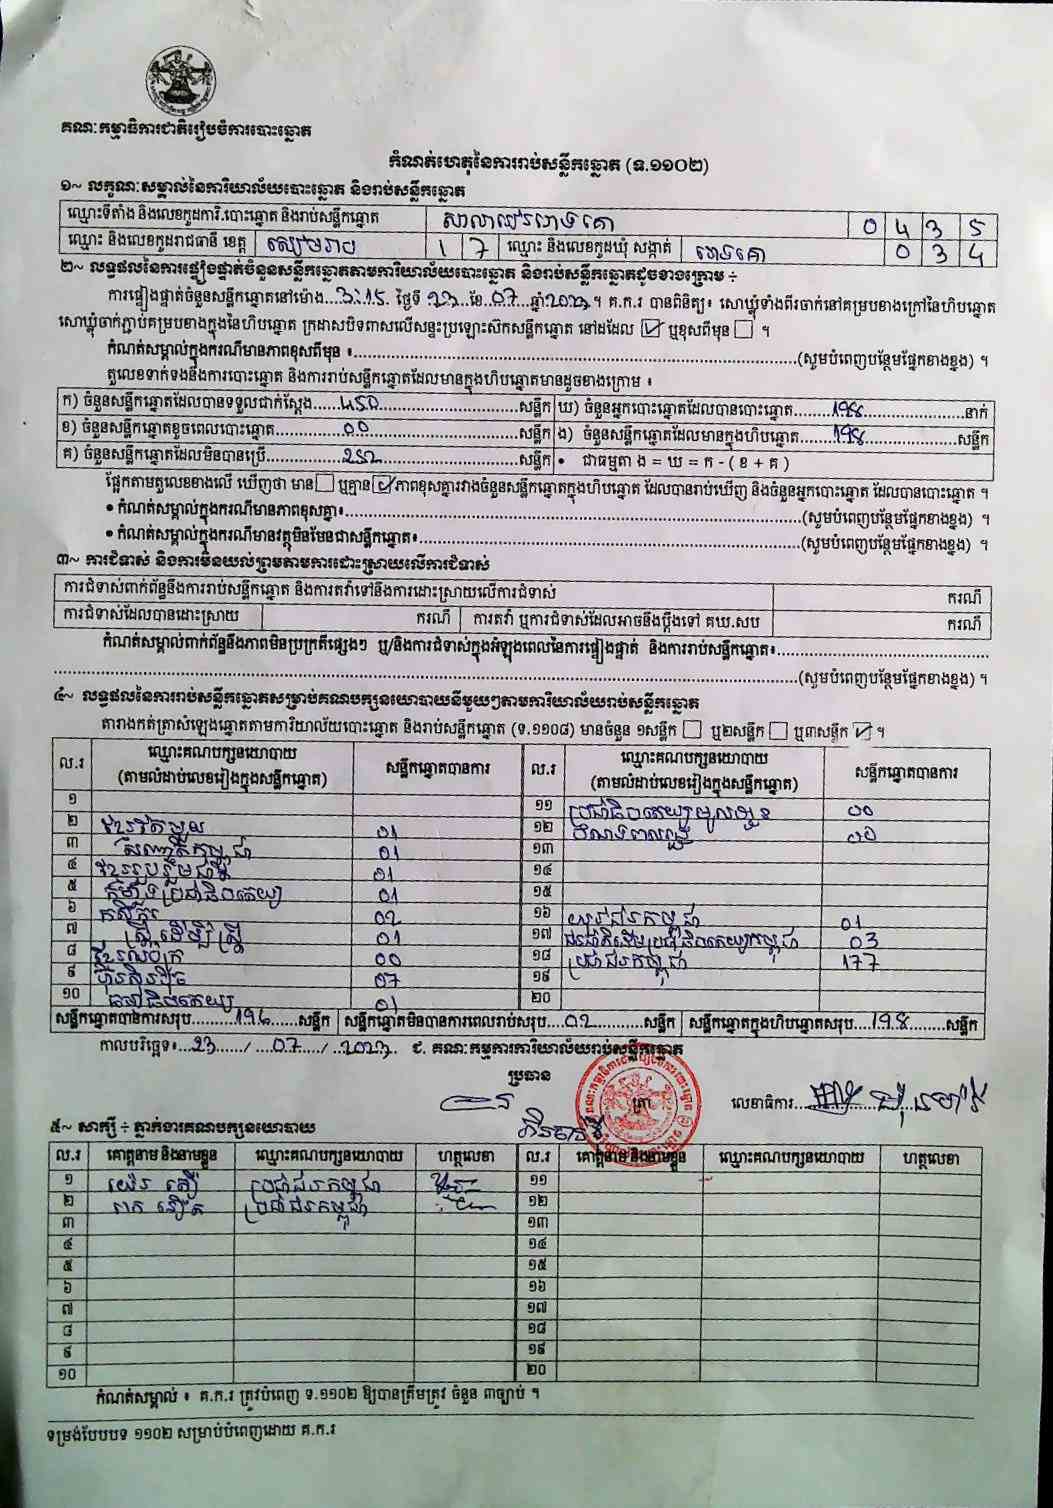 គណៈកម្មាធិការជាតិរៀបចំការបោះឆ្នោត
កំណត់ហេតុនៃការរាប់សន្លឹកឆ្នោត (ទ.១១០២)
១~ លក្ខណៈសម្គាល់នៃការិយាល័យបោះឆ្នោត និងរាប់សន្លឹកឆ្នោត
ឈ្មោះទីតាំង និងលេខកូដការិ.បោះឆ្នោត និងរាប់សន្លឹកឆ្នោត 0 4 3 5
ឈ្មោះ និងលេខកូដរាជធានី ខេត្ត សៀមរាប 1 7 ឈ្មោះ និងលេខកូដឃុំ សង្កាត់ 0 3 4
២~ លទ្ធផលនៃការផ្ទៀងផ្ទាត់ចំនួនសន្លឹកឆ្នោតតាមការិយាល័យបោះឆ្នោត និងរាប់សន្លឹកឆ្នោតដូចខាងក្រោម ÷
ការផ្ទៀងផ្ទាត់ចំនួនសន្លឹកឆ្នោតនៅម៉ោង...3:15 ថ្ងៃទី 23 .ខែ.07.. ឆ្នាំ2023។ គ.ក.រ បានពិនិត្យ៖ សោឃ្លុំទាំងពីរចាក់នៅគម្របខាងក្រៅនៃហិបឆ្នោត
សោឃ្លុំចាក់ភ្ជាប់គម្របខាងក្នុងនៃហិបឆ្នោត ក្រដាសបិទពាសលើសន្ទះប្រឡោះស៊កសន្លឹកឆ្នោត នៅដដែល ☑ ឬខុសពីមុន ☐ ។
កំណត់សម្គាល់ក្នុងករណីមានភាពខុសពីមុន ៖.....(សូមបំពេញបន្ថែមផ្នែកខាងខ្នង) ។
តួលេខទាក់ទងនឹងការបោះឆ្នោត និងការរាប់សន្លឹកឆ្នោតដែលមានក្នុងហិបឆ្នោតមានដូចខាងក្រោម ៖
ក) ចំនួនសន្លឹកឆ្នោតដែលបានទទួលជាក់ស្ដែង......450......សន្លឹក ឃ) ចំនួនអ្នកបោះឆ្នោតដែលបានបោះឆ្នោត......198......នាក់
ខ) ចំនួនសន្លឹកឆ្នោតខូចពេលបោះឆ្នោត......00......សន្លឹក ង) ចំនួនសន្លឹកឆ្នោតដែលមានក្នុងហិបឆ្នោត......198......សន្លឹក
គ) ចំនួនសន្លឹកឆ្នោតដែលមិនបានប្រើ......252......សន្លឹក • ជាធម្មតា ង = ឃ = ក - ( ខ + គ )
ផ្អែកតាមតួលេខខាងលើ ឃើញថា មាន ☐ ឬគ្មាន ☑ ភាពខុសគ្នារវាងចំនួនសន្លឹកឆ្នោតក្នុងហិបឆ្នោត ដែលបានរាប់ឃើញ និងចំនួនអ្នកបោះឆ្នោត ដែលបានបោះឆ្នោត ។
• កំណត់សម្គាល់ក្នុងករណីមានភាពខុសគ្នា៖.....(សូមបំពេញបន្ថែមផ្នែកខាងខ្នង) ។
• កំណត់សម្គាល់ក្នុងករណីមានវត្ថុមិនមែនជាសន្លឹកឆ្នោត៖.....(សូមបំពេញបន្ថែមផ្នែកខាងខ្នង) ។
៣~ ការជំទាស់ និងការមិនយល់ព្រមតាមការដោះស្រាយលើការជំទាស់
ការជំទាស់ពាក់ព័ន្ធនឹងការរាប់សន្លឹកឆ្នោត និងការតវ៉ាទៅនឹងការដោះស្រាយលើការជំទាស់ ករណី
ការជំទាស់ដែលបានដោះស្រាយ ករណី ការតវ៉ា ឬការជំទាស់ដែលអាចនឹងប្ដឹងទៅ គឃ.សប ករណី
កំណត់សម្គាល់ពាក់ព័ន្ធនឹងភាពមិនប្រក្រតីផ្សេងៗ ឬ/និងការជំទាស់ក្នុងអំឡុងពេលនៃការផ្ទៀងផ្ទាត់ និងការរាប់សន្លឹកឆ្នោត៖.....
.....(សូមបំពេញបន្ថែមផ្នែកខាងខ្នង) ។
៤~ លទ្ធផលនៃការរាប់សន្លឹកឆ្នោតសម្រាប់គណបក្សនយោបាយនីមួយៗតាមការិយាល័យរាប់សន្លឹកឆ្នោត
តារាងកត់ត្រាសំឡេងឆ្នោតតាមការិយាល័យបោះឆ្នោត និងរាប់សន្លឹកឆ្នោត (ទ.១១០៨) មានចំនួន ១សន្លឹក ☐ ឬ២សន្លឹក ☐ ឬ៣សន្លឹក ☑ ។
ល.រ ឈ្មោះគណបក្សនយោបាយ (តាមលំដាប់លេខរៀងក្នុងសន្លឹកឆ្នោត) សន្លឹកឆ្នោតបានការ ល.រ ឈ្មោះគណបក្សនយោបាយ (តាមលំដាប់លេខរៀងក្នុងសន្លឹកឆ្នោត) សន្លឹកឆ្នោតបានការ
១ ១១ ប្រជាធិបតេយ្យមូលដ្ឋាន 00
២ 01 ១២ 00
៣ 01 ១៣
៤ 01 ១៤
៥ កម្លាំងប្រជាធិបតេយ្យ 01 ១៥
៦ កសិករ 02 ១៦ 01
៧ ស្ត្រីដើម្បីស្ត្រី 01 ១៧ 03
៨ 00 ១៨ ប្រជាជនកម្ពុជា 177
៩ ហ៊្វុនស៊ិនប៉ិច 07 ១៩
១០ 01 ២០
សន្លឹកឆ្នោតបានការសរុប......196......សន្លឹក សន្លឹកឆ្នោតមិនបានការពេលរាប់សរុប......02......សន្លឹក សន្លឹកឆ្នោតក្នុងហិបឆ្នោតសរុប...198......សន្លឹក
កាលបរិច្ឆេទ៖...23...../....07...../...2023. ជ. គណៈកម្មការការិយាល័យរាប់សន្លឹកឆ្នោត
ប្រធាន
ត្រា
លេខាធិការ
៥~ សាក្សី ÷ ភ្នាក់ងារគណបក្សនយោបាយ
ល.រ គោត្តនាម និងនាមខ្លួន ឈ្មោះគណបក្សនយោបាយ ហត្ថលេខា ល.រ គោត្តនាម និងនាមខ្លួន ឈ្មោះគណបក្សនយោបាយ ហត្ថលេខា
១ ប្រជាជនកម្ពុជា ១១
២ ប្រជាជនកម្ពុជា ១២
៣ ១៣
៤ ១៤
៥ ១៥
៦ ១៦
៧ ១៧
៨ ១៨
៩ ១៩
១០ ២០
កំណត់សម្គាល់ ៖ គ.ក.រ ត្រូវបំពេញ ទ.១១០២ ឱ្យបានត្រឹមត្រូវ ចំនួន ៣ច្បាប់ ។
ទម្រង់បែបបទ ១១០២ សម្រាប់បំពេញដោយ គ.ក.រ